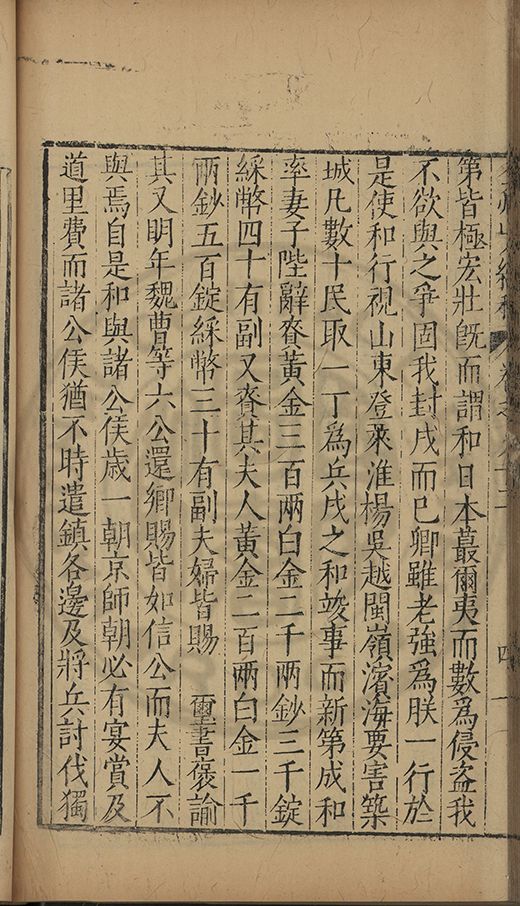 第皆極宏壯既而謂和日本蕞爾夷而數爲侵盗我
不欲與之爭固我封戌而已卿雖老強爲朕一行於
是使和行視山東登萊淮楊吳越閩嶺濱海要害築
城凡數十民取一丁爲兵戌之和竣事而新第成和
率妻子陛辭賚黃金三百兩白金二千兩鈔三千錠
綵幣四十有副又賚其夫人黃金二百兩白金一千
兩鈔五百錠綵幣三十有副夫婦皆賜 璽書褒諭
其又明年魏曹等六公還鄉賜皆如信公而夫人不
與焉自是和與諸公侯歳一朝京師朝必有宴賞及
道里費而諸公侯猶不時遣鎮各邊及將兵討伐獨